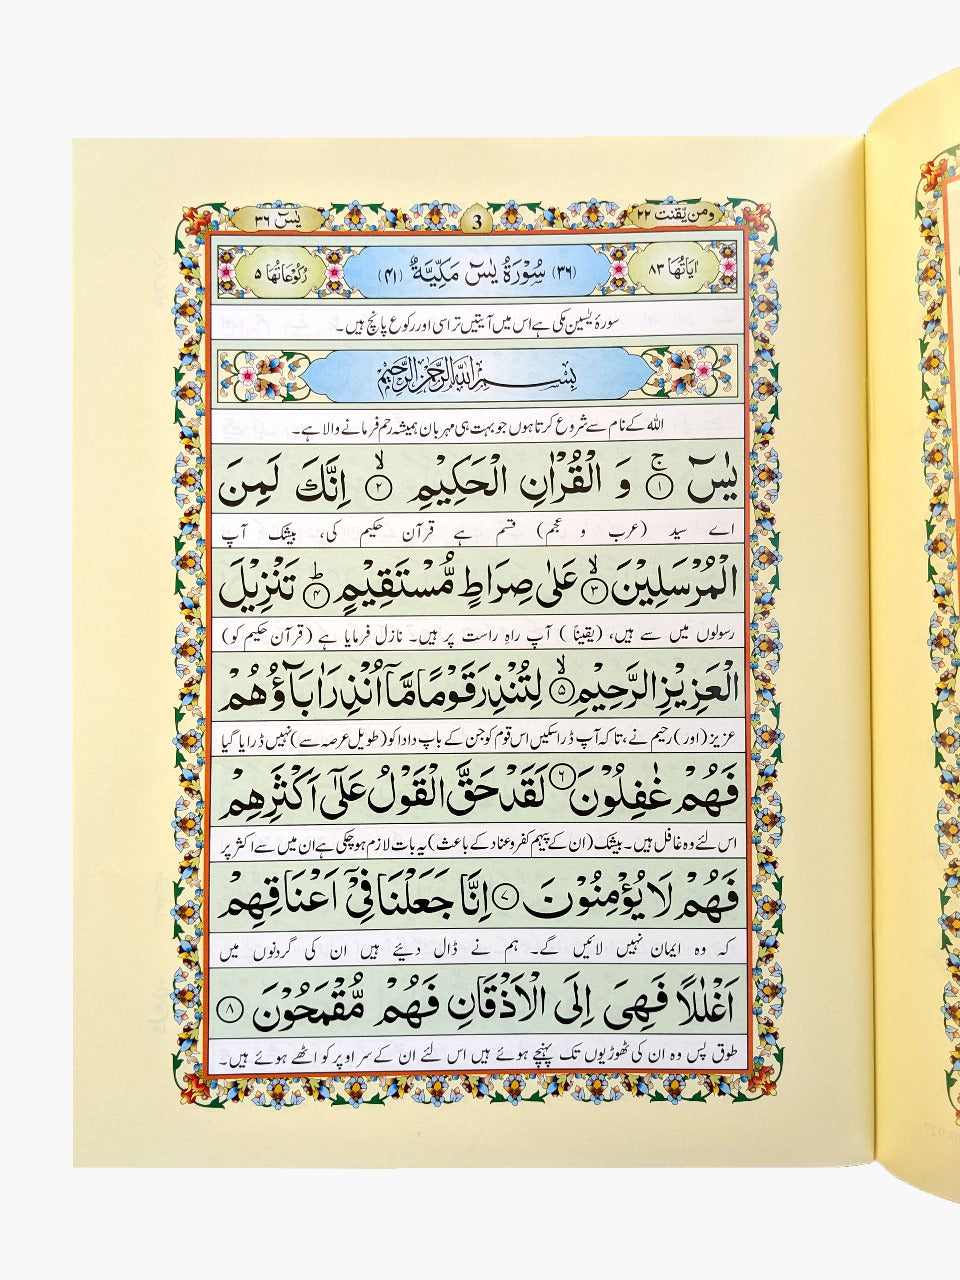 ومن يقنت ٢٢
3
يٰسٓ ٣٦
اٰيَاتُهَا ٨٣
(٣٦) سُوْرَةُ يٰسٓ مَكِّيَّةٌ (٤١)
رُكُوْعَاتُهَا ٥
سورۂ یٰسین مکی ہے اس میں آیتیں تراسی اور رکوع پانچ ہیں۔
بِسْمِ اللّٰهِ الرَّحْمٰنِ الرَّحِيْمِ
اللہ کے نام سے شروع کرتا ہوں جو بہت ہی مہربان ہمیشہ رحم فرمانے والا ہے۔
يٰسٓ ۚ ﴿١﴾ وَ الْقُرْاٰنِ الْحَكِيْمِ ۙ ﴿٢﴾ اِنَّكَ لَمِنَ
اے سید (عرب و عجم) قسم ہے قرآن حکیم کی، بیشک آپ
الْمُرْسَلِيْنَ ۙ ﴿٣﴾ عَلٰى صِرَاطٍ مُّسْتَقِيْمٍ ؕ ﴿٤﴾ تَنْزِيْلَ
رسولوں میں سے ہیں، (یقیناً) آپ راہ راست پر ہیں۔ نازل فرمایا ہے (قرآن حکیم کو)
الْعَزِيْزِ الرَّحِيْمِ ۙ ﴿٥﴾ لِتُنْذِرَ قَوْمًا مَّاۤ اُنْذِرَ اٰبَآؤُهُمْ
عزیز (اور) رحیم نے، تاکہ آپ ڈراسکیں اس قوم کو جن کے باپ دادا کو (طویل عرصہ سے) نہیں ڈرایا گیا
فَهُمْ غٰفِلُوْنَ ﴿٦﴾ لَقَدْ حَقَّ الْقَوْلُ عَلٰۤى اَكْثَرِهِمْ
اس لئے وہ غافل ہیں۔ بیشک (ان کے پیہم کفر و عناد کے باعث) یہ بات لازم ہو چکی ہے ان میں سے اکثر پر
فَهُمْ لَا يُؤْمِنُوْنَ ﴿٧﴾ اِنَّا جَعَلْنَا فِيْۤ اَعْنَاقِهِمْ
کہ وہ ایمان نہیں لائیں گے۔ ہم نے ڈال دیئے ہیں ان کی گردنوں میں
اَغْلٰلًا فَهِيَ اِلَى الْاَذْقَانِ فَهُمْ مُّقْمَحُوْنَ ﴿٨﴾
طوق پس وہ ان کی ٹھوڑیوں تک پہنچے ہوئے ہیں اس لئے ان کے سر اوپر کو اٹھے ہوئے ہیں۔